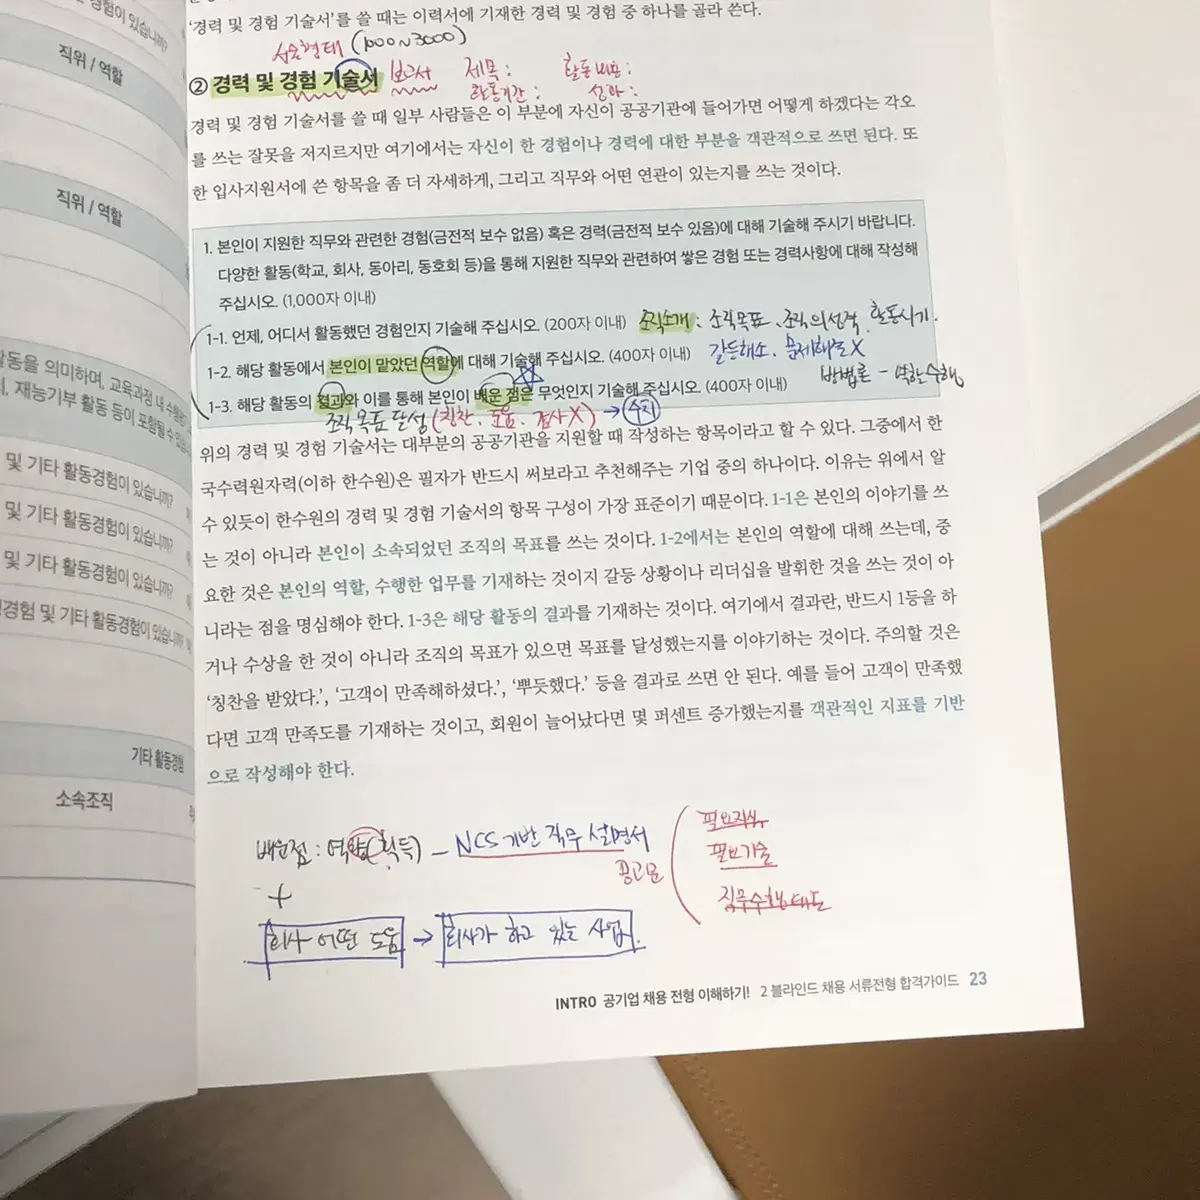 경험이 있습니까?
직위 / 역할
직위 / 역할
활동을 의미하며, 교육과정 내 수행평
재능기부 활동 등이 포함될 수 있습니
및 기타 활동경험이 있습니까?
및 기타 활동경험이 있습니까?
및 기타 활동경험이 있습니까?
경험 및 기타 활동경험이 있습니까?
기타 활동경험
소속조직
'경력 및 경험 기술서'를 쓸 때는 이력서에 기재한 경력 및 경험 중 하나를 골라 쓴다.
서술형태 (1000~3000)
② 경력 및 경험 기술서 보고서 제목: 활동내용:
활동기간: 성과:
경력 및 경험 기술서를 쓸 때 일부 사람들은 이 부분에 자신이 공공기관에 들어가면 어떻게 하겠다는 각오
를 쓰는 잘못을 저지르지만 여기에서는 자신이 한 경험이나 경력에 대한 부분을 객관적으로 쓰면 된다. 또
한 입사지원서에 쓴 항목을 좀 더 자세하게, 그리고 직무와 어떤 연관이 있는지를 쓰는 것이다.
1. 본인이 지원한 직무와 관련한 경험(금전적 보수 없음) 혹은 경력(금전적 보수 있음)에 대해 기술해 주시기 바랍니다.
다양한 활동(학교, 회사, 동아리, 동호회 등)을 통해 지원한 직무와 관련하여 쌓은 경험 또는 경력사항에 대해 작성해
주십시오. (1,000자 이내)
1-1. 언제, 어디서 활동했던 경험인지 기술해 주십시오. (200자 이내) 조직소개: 조직목표, 조직의성격, 활동시기.
1-2. 해당 활동에서 본인이 맡았던 역할에 대해 기술해 주십시오. (400자 이내) 갈등해소, 문제해결 X
방법론 - 역할수행
1-3. 해당 활동의 결과와 이를 통해 본인이 배운 점은 무엇인지 기술해 주십시오. (400자 이내)
조직목표 달성 (칭찬, 도움, 감사 X) → 수치
위의 경력 및 경험 기술서는 대부분의 공공기관을 지원할 때 작성하는 항목이라고 할 수 있다. 그중에서 한
국수력원자력(이하 한수원)은 필자가 반드시 써보라고 추천해주는 기업 중의 하나이다. 이유는 위에서 알
수 있듯이 한수원의 경력 및 경험 기술서의 항목 구성이 가장 표준이기 때문이다. 1-1은 본인의 이야기를 쓰
는 것이 아니라 본인이 소속되었던 조직의 목표를 쓰는 것이다. 1-2에서는 본인의 역할에 대해 쓰는데, 중
요한 것은 본인의 역할, 수행한 업무를 기재하는 것이지 갈등 상황이나 리더십을 발휘한 것을 쓰는 것이 아
니라는 점을 명심해야 한다. 1-3은 해당 활동의 결과를 기재하는 것이다. 여기에서 결과란, 반드시 1등을 하
거나 수상을 한 것이 아니라 조직의 목표가 있으면 목표를 달성했는지를 이야기하는 것이다. 주의할 것은
'칭찬을 받았다.', '고객이 만족해하셨다.', '뿌듯했다.' 등을 결과로 쓰면 안 된다. 예를 들어 고객이 만족했
다면 고객 만족도를 기재하는 것이고, 회원이 늘어났다면 몇 퍼센트 증가했는지를 객관적인 지표를 기반
으로 작성해야 한다.
배운점: 역량(획득) - NCS 기반 직무 설명서
공고문
필요지식
필요기술
직무수행태도
+
회사 어떤 도움 → 회사가 하고 있는 사업.
INTRO 공기업 채용 전형 이해하기! 2 블라인드 채용 서류전형 합격가이드 23